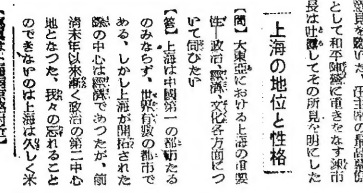 として和平陣營に重きをなす
長は吐露してその所見を明にした
上海の地位と性格
【問】大東亞における上海の重要
性―政治、經濟、文化各方面につ
いて伺ひたい
【答】上海は中國第一の都市たる
のみならず、世界有數の都市で
ある、しかし上海が開拓された
際の中心は經濟であつたが、前
清末年以來漸く政治の第二中心
地となつた、我々の忘れること
のできないのは上海は久しく米